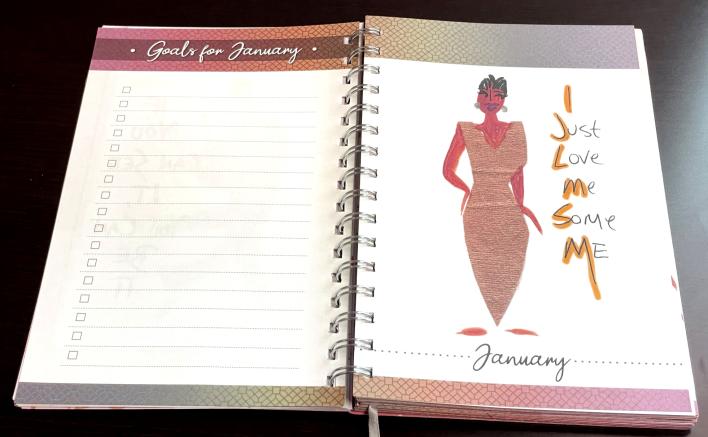 • Goals for January •
I
Just
Love
me
Some
ME
January